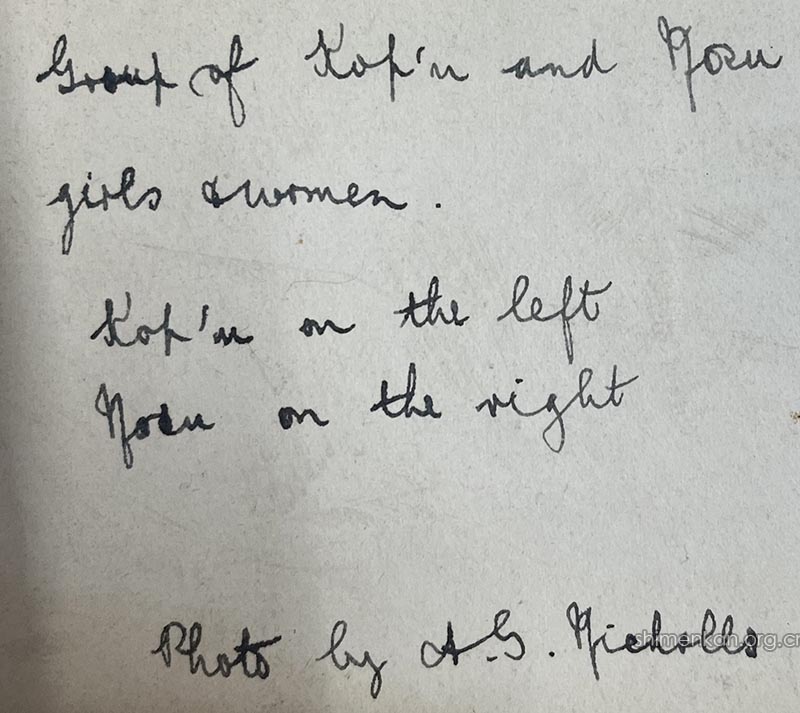 Group of Kop'u and Nosu
girls & women.
Kop'u on the left
Nosu on the right
Photo by A.G. Nicholls
shimenkan.org.cn